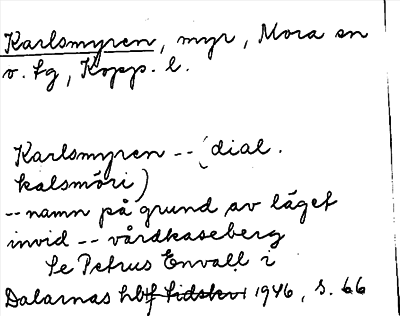 Karlsmyren, myr, Mora sn
v. fg, Kopp. l.
Karlsmyren -- (dial.
kalsmöri)
-- namn på grund av läget
invid -- vårdkaseberg
Se Petrus Envall i
Dalarnas hbf 1946, s. 66